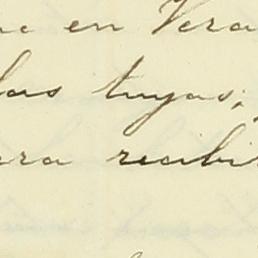 en Vera
las tuyas;
recibi